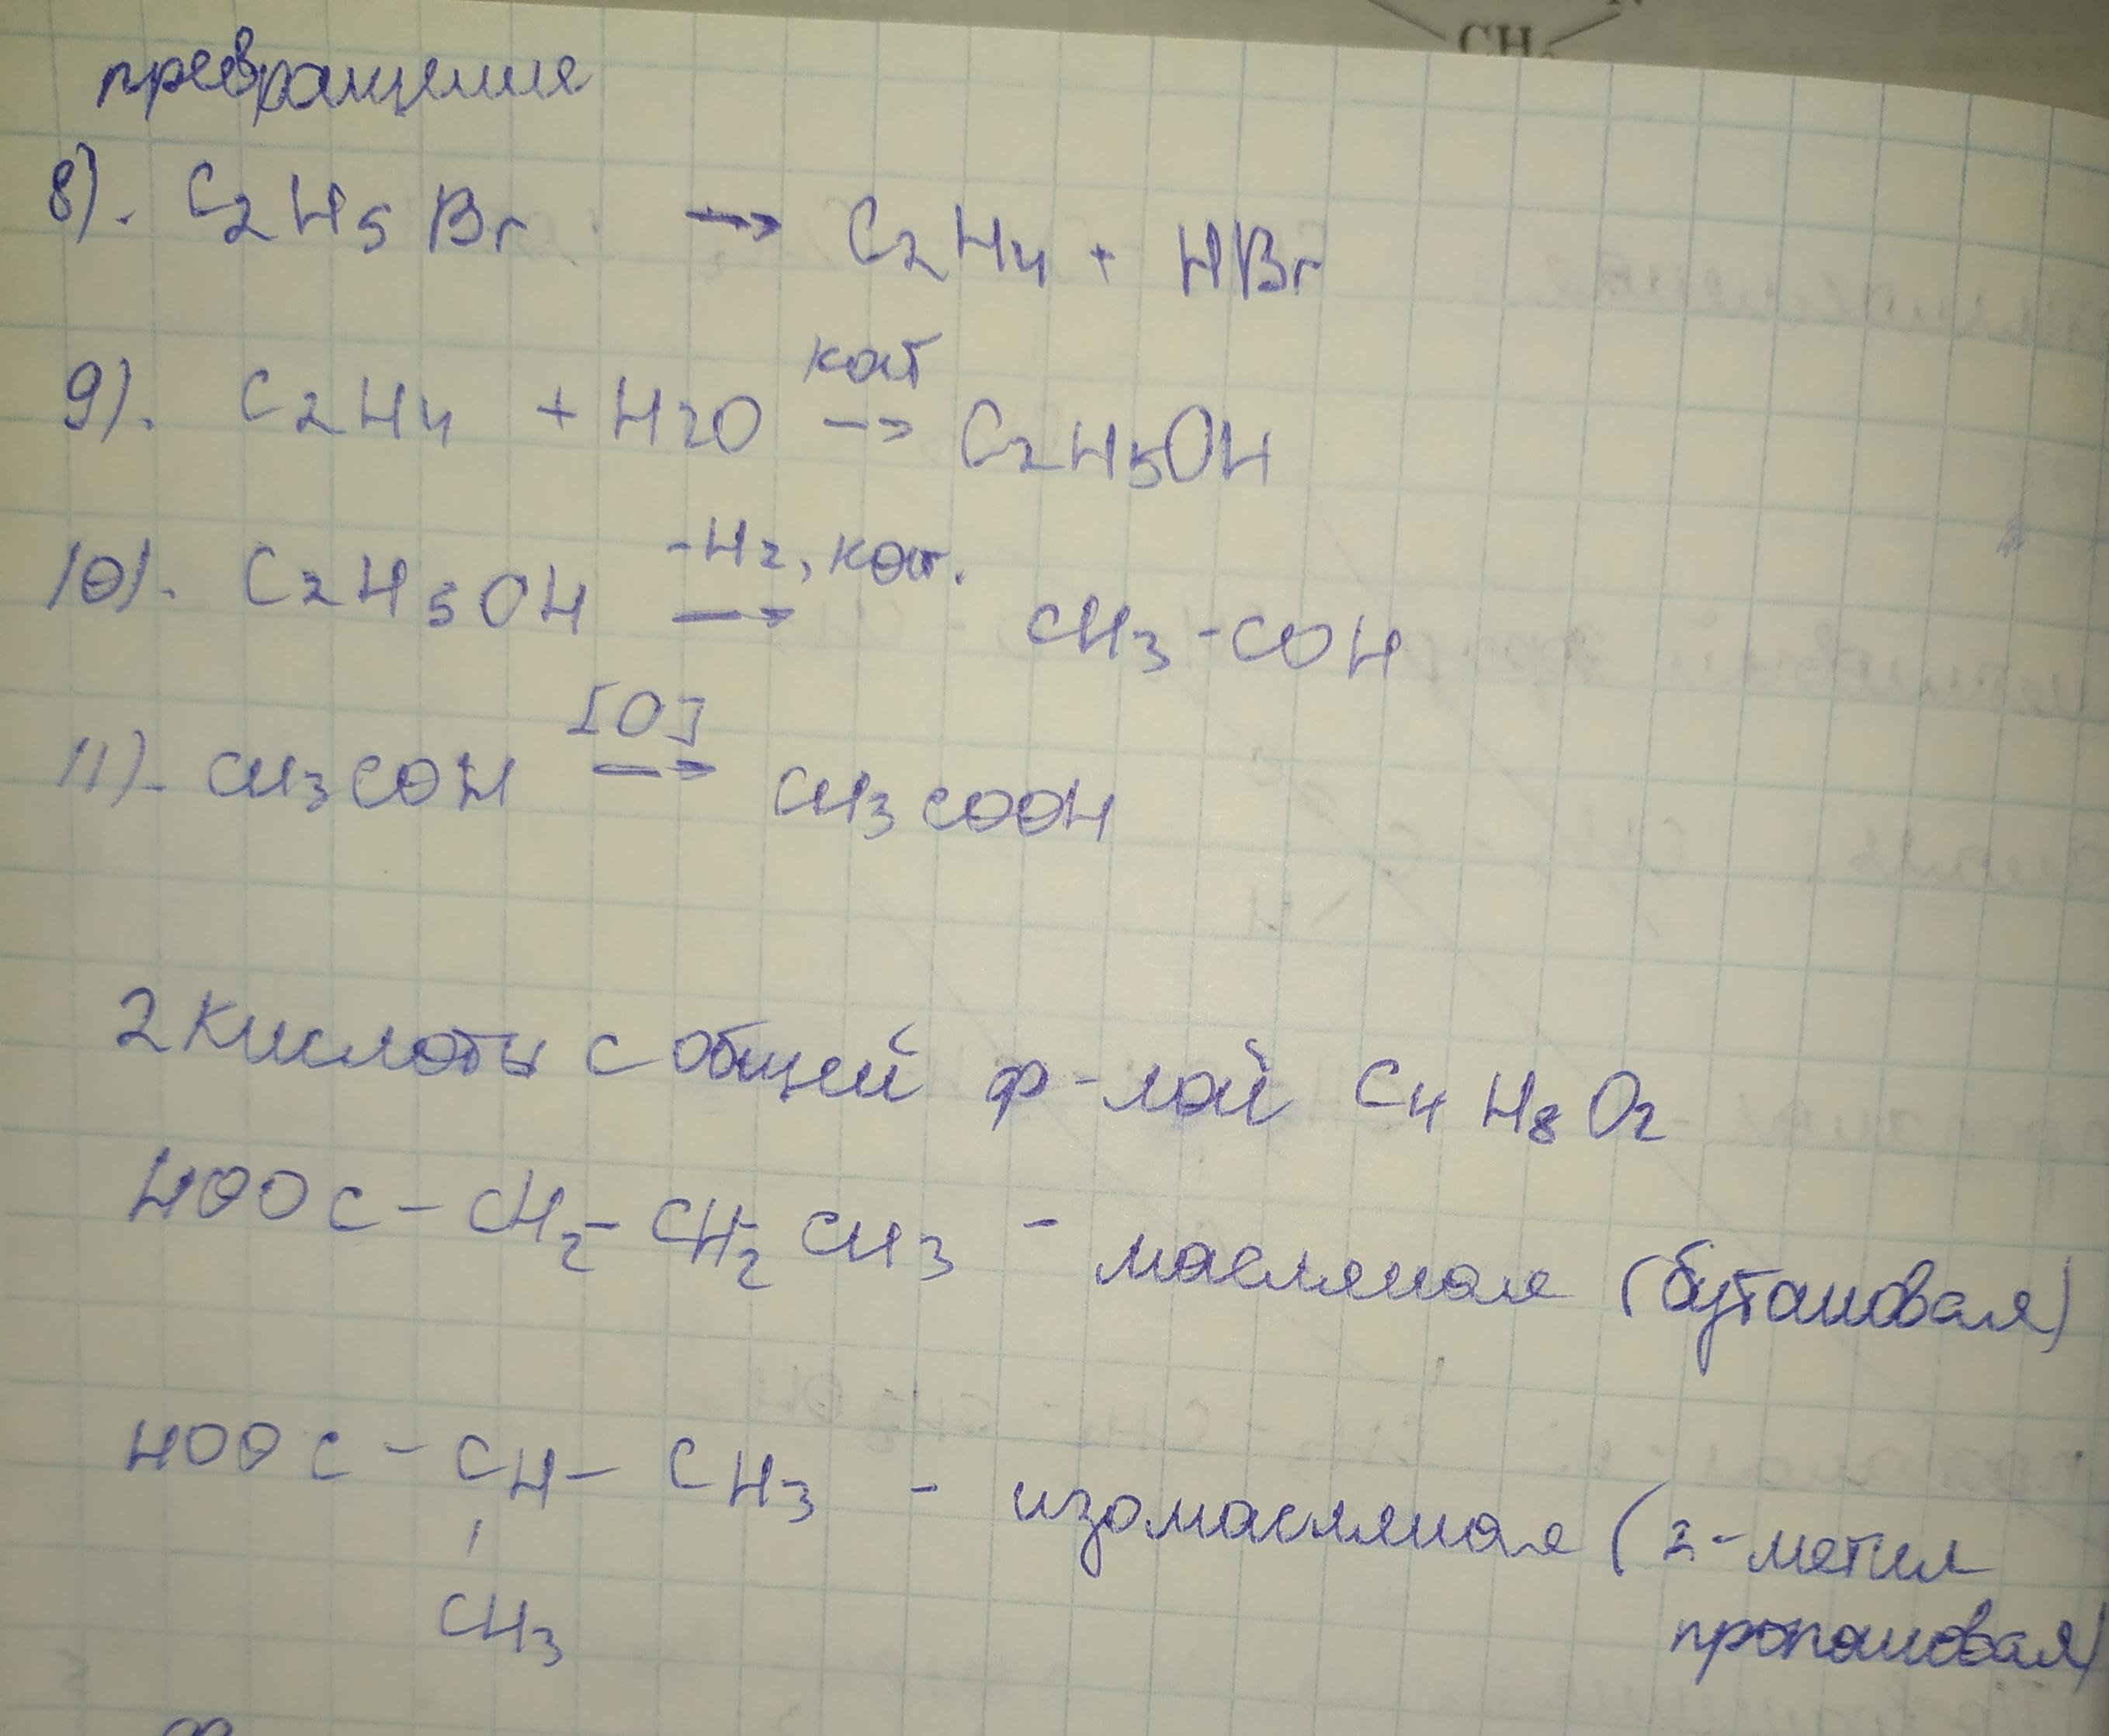 CH
превращение
8). C2H5Br → C2H4 + HBr
9). C2H4 + H2O кат → C2H5OH
10). C2H5OH -H2, кат. → CH3-COH
11). CH3COH [O] → CH3COOH
2 кислоты с общей ф-лой C4H8O2
HOOC - CH2 - CH2 CH3 - масляная (бутановая)
HOOC - CH - CH3 - изомасляная (2-метил
CH3
пропановая)